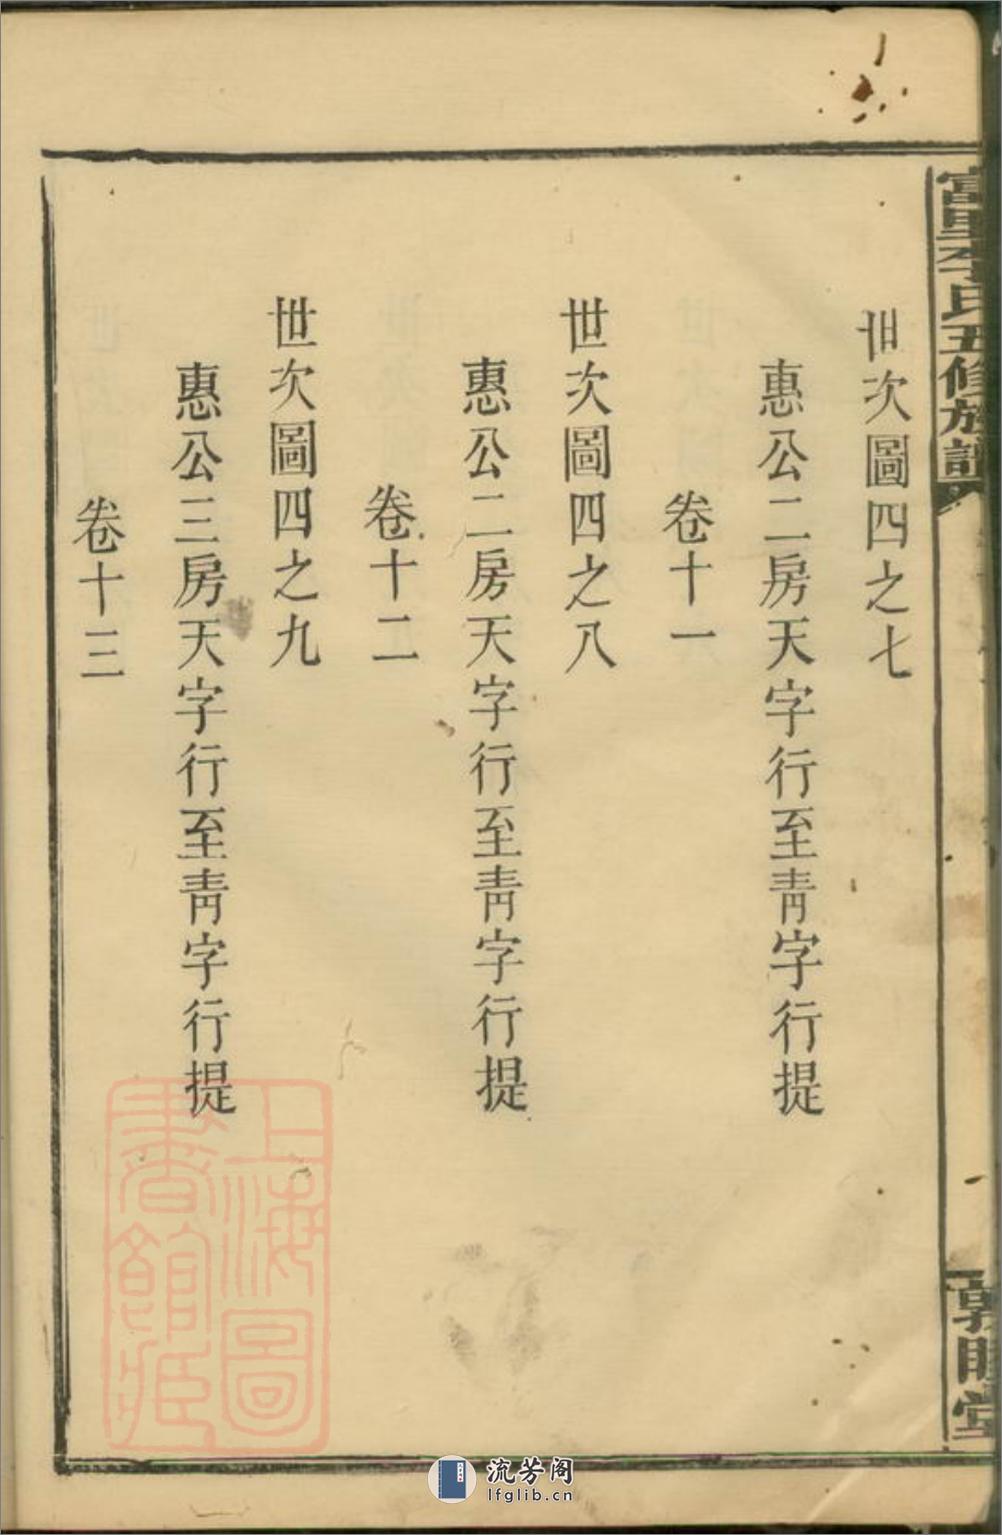 富里李氏五修族譜
敦睦堂
世次圖四之七
惠公二房天字行至靑字行提
卷十一
世次圖四之八
惠公二房天字行至靑字行提
卷十二
世次圖四之九
惠公三房天字行至靑字行提
卷十三
上海圖
書館藏
流芳阁
lfglib.cn